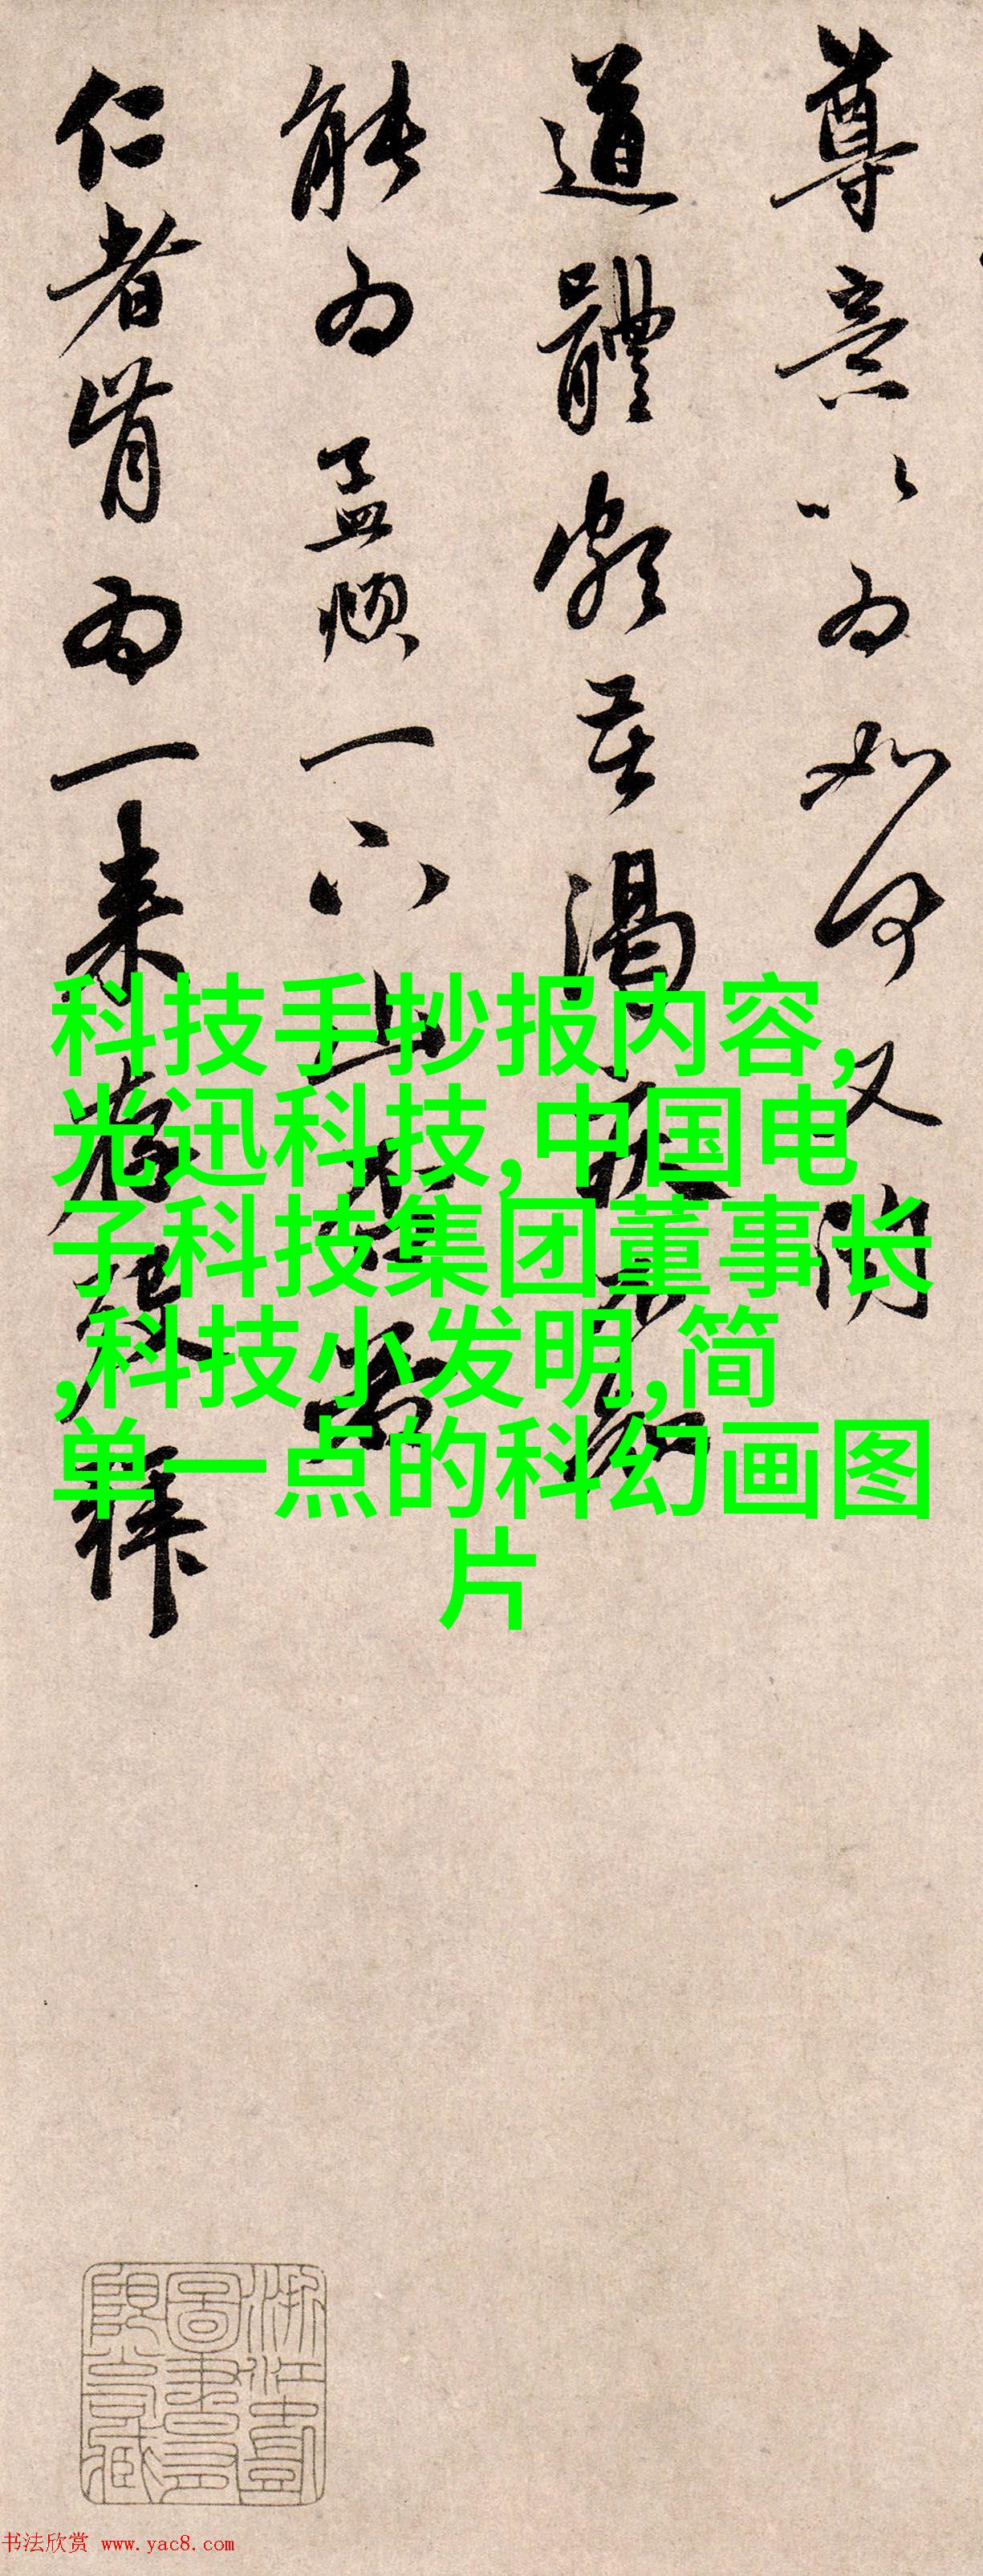 尊意以為如何又闻
道體頗苦渴疾不知
能為孟頫一下山
仁者肯為一来
科技手抄报内容,
光迅科技,中国电
子科技集团董事长
,科技小发明,简
单一点的科幻画图
片
书法欣赏 www.yac8.com